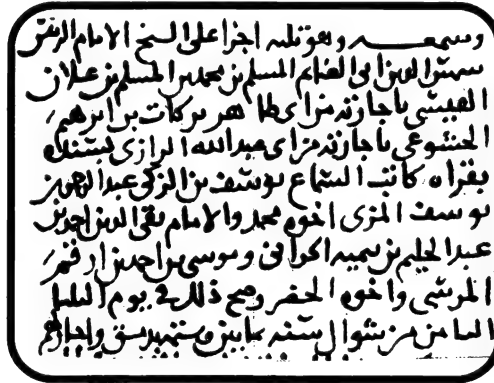 وسمعه وهو ثلثه اجزا على الشيخ الامام الرئيس
شمس الدين ابي الغنايم المسلم بن محمد بن المسلم بن علان
القيسي باجازته من ابي طاهر بركات بن ابرهيم
الخشوعي باجازته من ابي عبدالله الرازي بسنده
بقراه كاتب السماع يوسف بن الزكي عبد الرحمن بن
يوسف المزي اخوه محمد والامام تقي الدين احمد بن
عبد الحليم بن تيميه الحراني وموسى بن احمد بن
واخوه الخضر وصح ذلك في يوم
الثامن من شوال سنه ثمانين وستمه بدمشق واجاز لهم